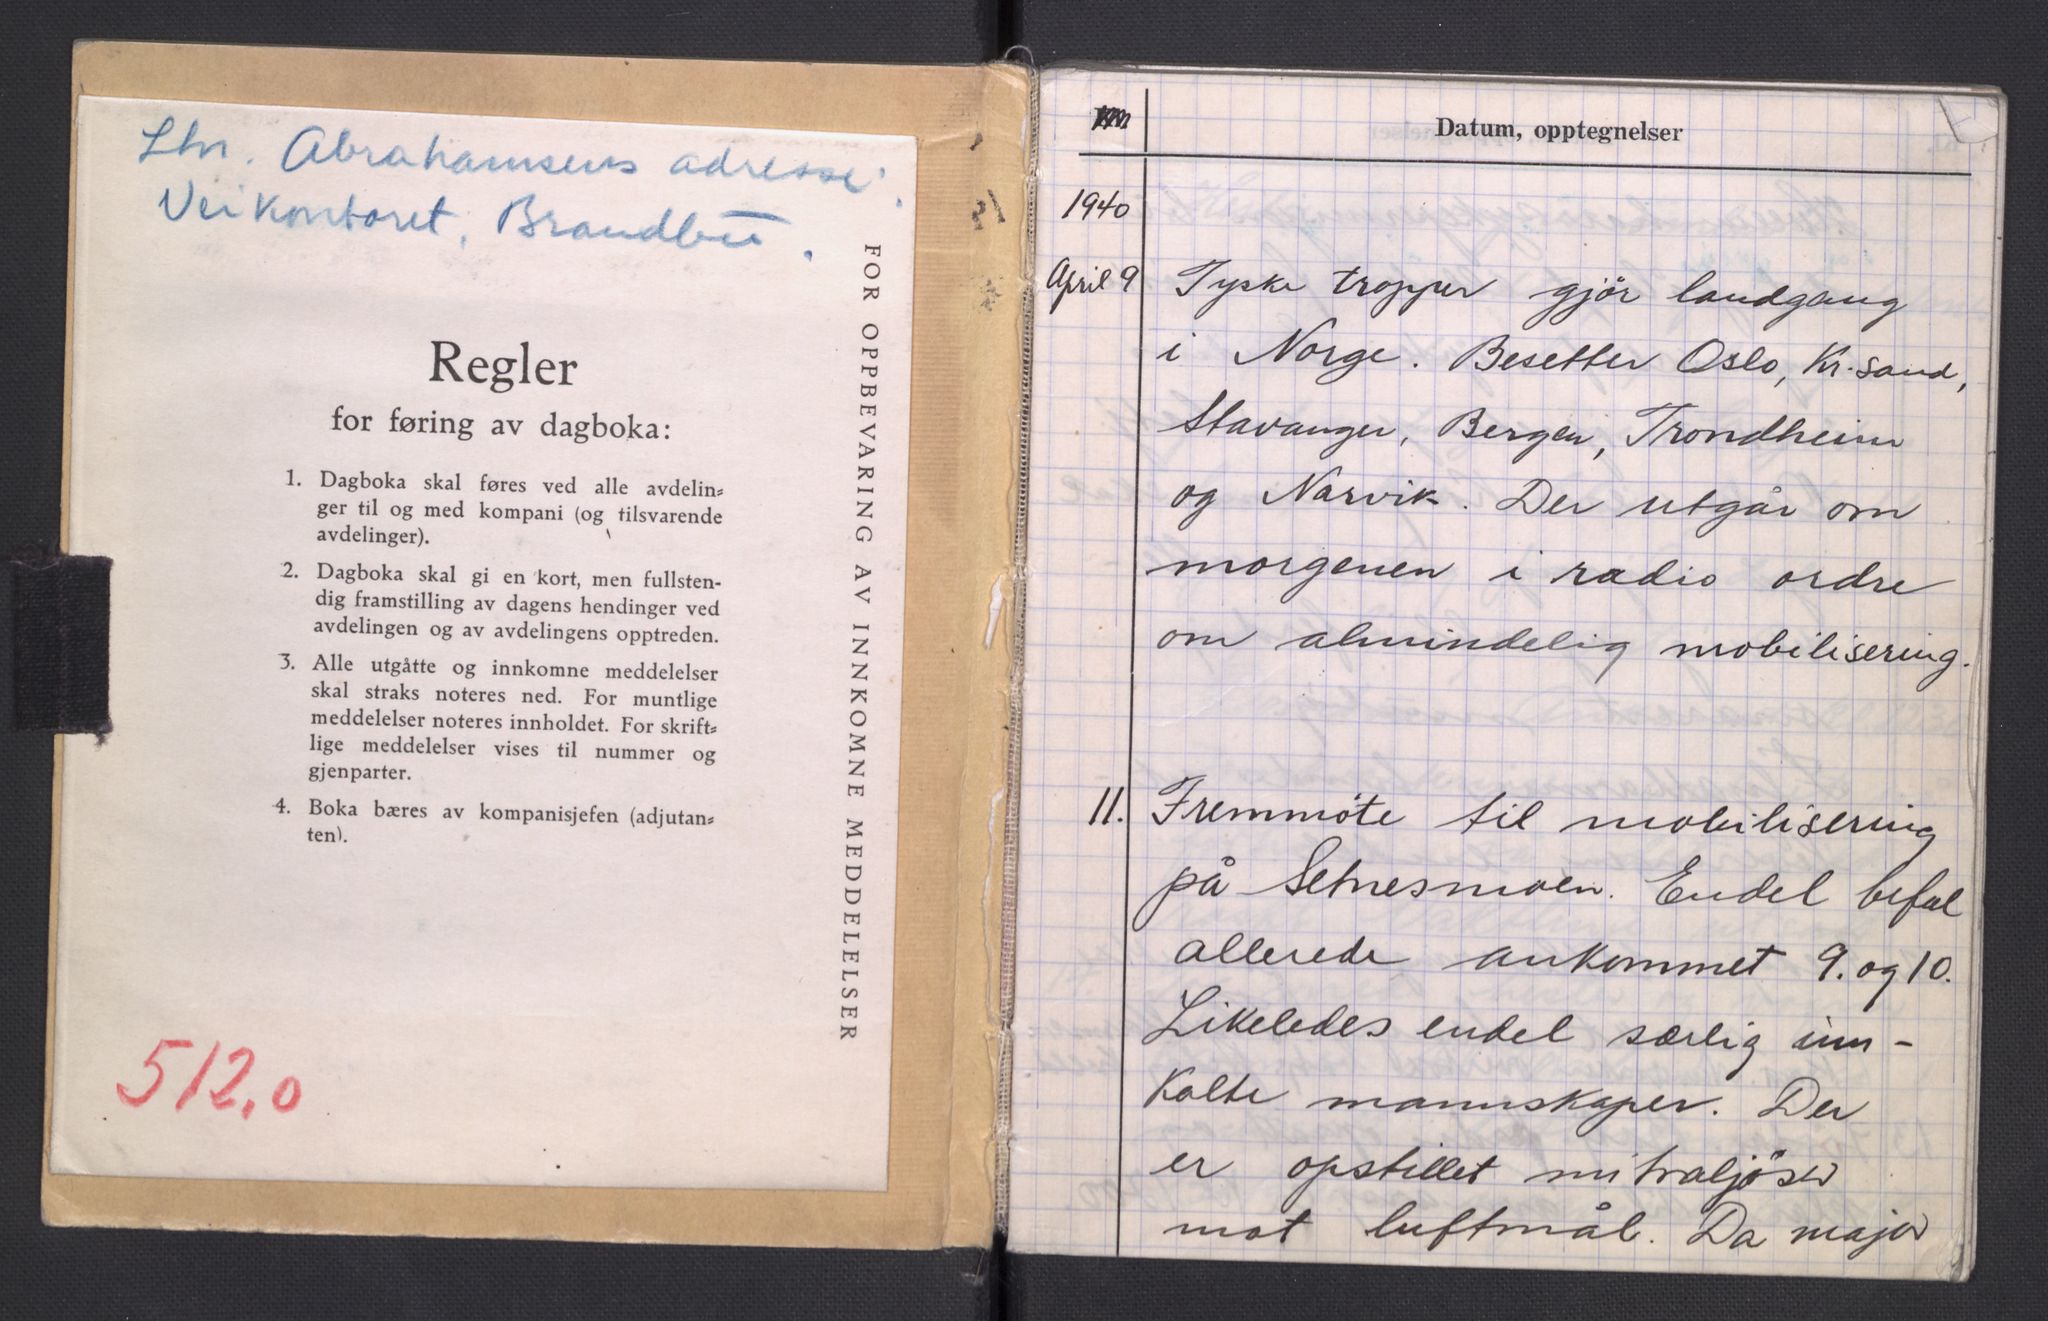 Ltn. Abrahamsens adresse:
Veikontoret, Brandbu.
Regler
for føring av dagboka:
1. Dagboka skal føres ved alle avdelin=
ger til og med kompani (og tilsvarende
avdelinger).
2. Dagboka skal gi en kort, men fullsten-
dig framstilling av dagens hendinger ved
avdelingen og av avdelingens opptreden.
3. Alle utgåtte og innkomne meddelelser
skal straks noteres ned. For muntlige
meddelelser noteres innholdet. For skrift=
lige meddelelser vises til nummer og
gjenparter.
4. Boka bæres av kompanisjefen (adjutan=
ten).
FOR OPPBEVARING AV INNKOMNE MEDDELELSER
512.0
Datum, opptegnelser
1940
April 9 Tyske tropper gjör landgang
i Norge. Besetter Oslo, Kr.sand,
Stavanger, Bergen, Trondheim
og Narvik. Der utgår om
morgenen i radio ordre
om almindelig mobilisering.
11. Fremmöte til mobilisering
på Setnesmoen. Endel befal
allerede ankommet 9. og 10.
Likeledes endel særlig inn-
kalte mannskaper. Der
er opstillet mitraljöser
mot luftmål. Da major